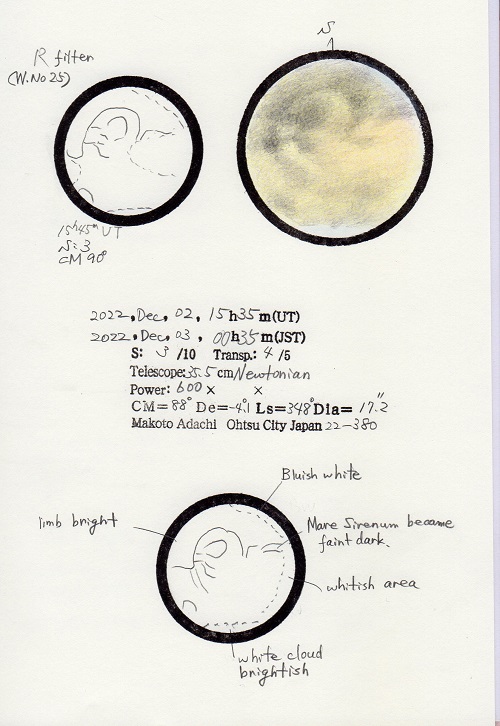 S
R filter
(W.No 25)
15h45m UT
S:3
CM 90°
2022, Dec, 02, 15h35m(UT)
2022, Dec, 03, 00h35m(JST)
S: 3 /10 Transp.: 4 /5
Telescope: 35.5 cm Newtonian
Power: 600 × ×
CM= 88° De= -4.1 Ls= 348° Dia= 17.2"
Makoto Adachi Ohtsu City Japan 22-380
Bluish white
limb bright
Mare Sirenum became
faint dark.
whitish area
white cloud
brightish